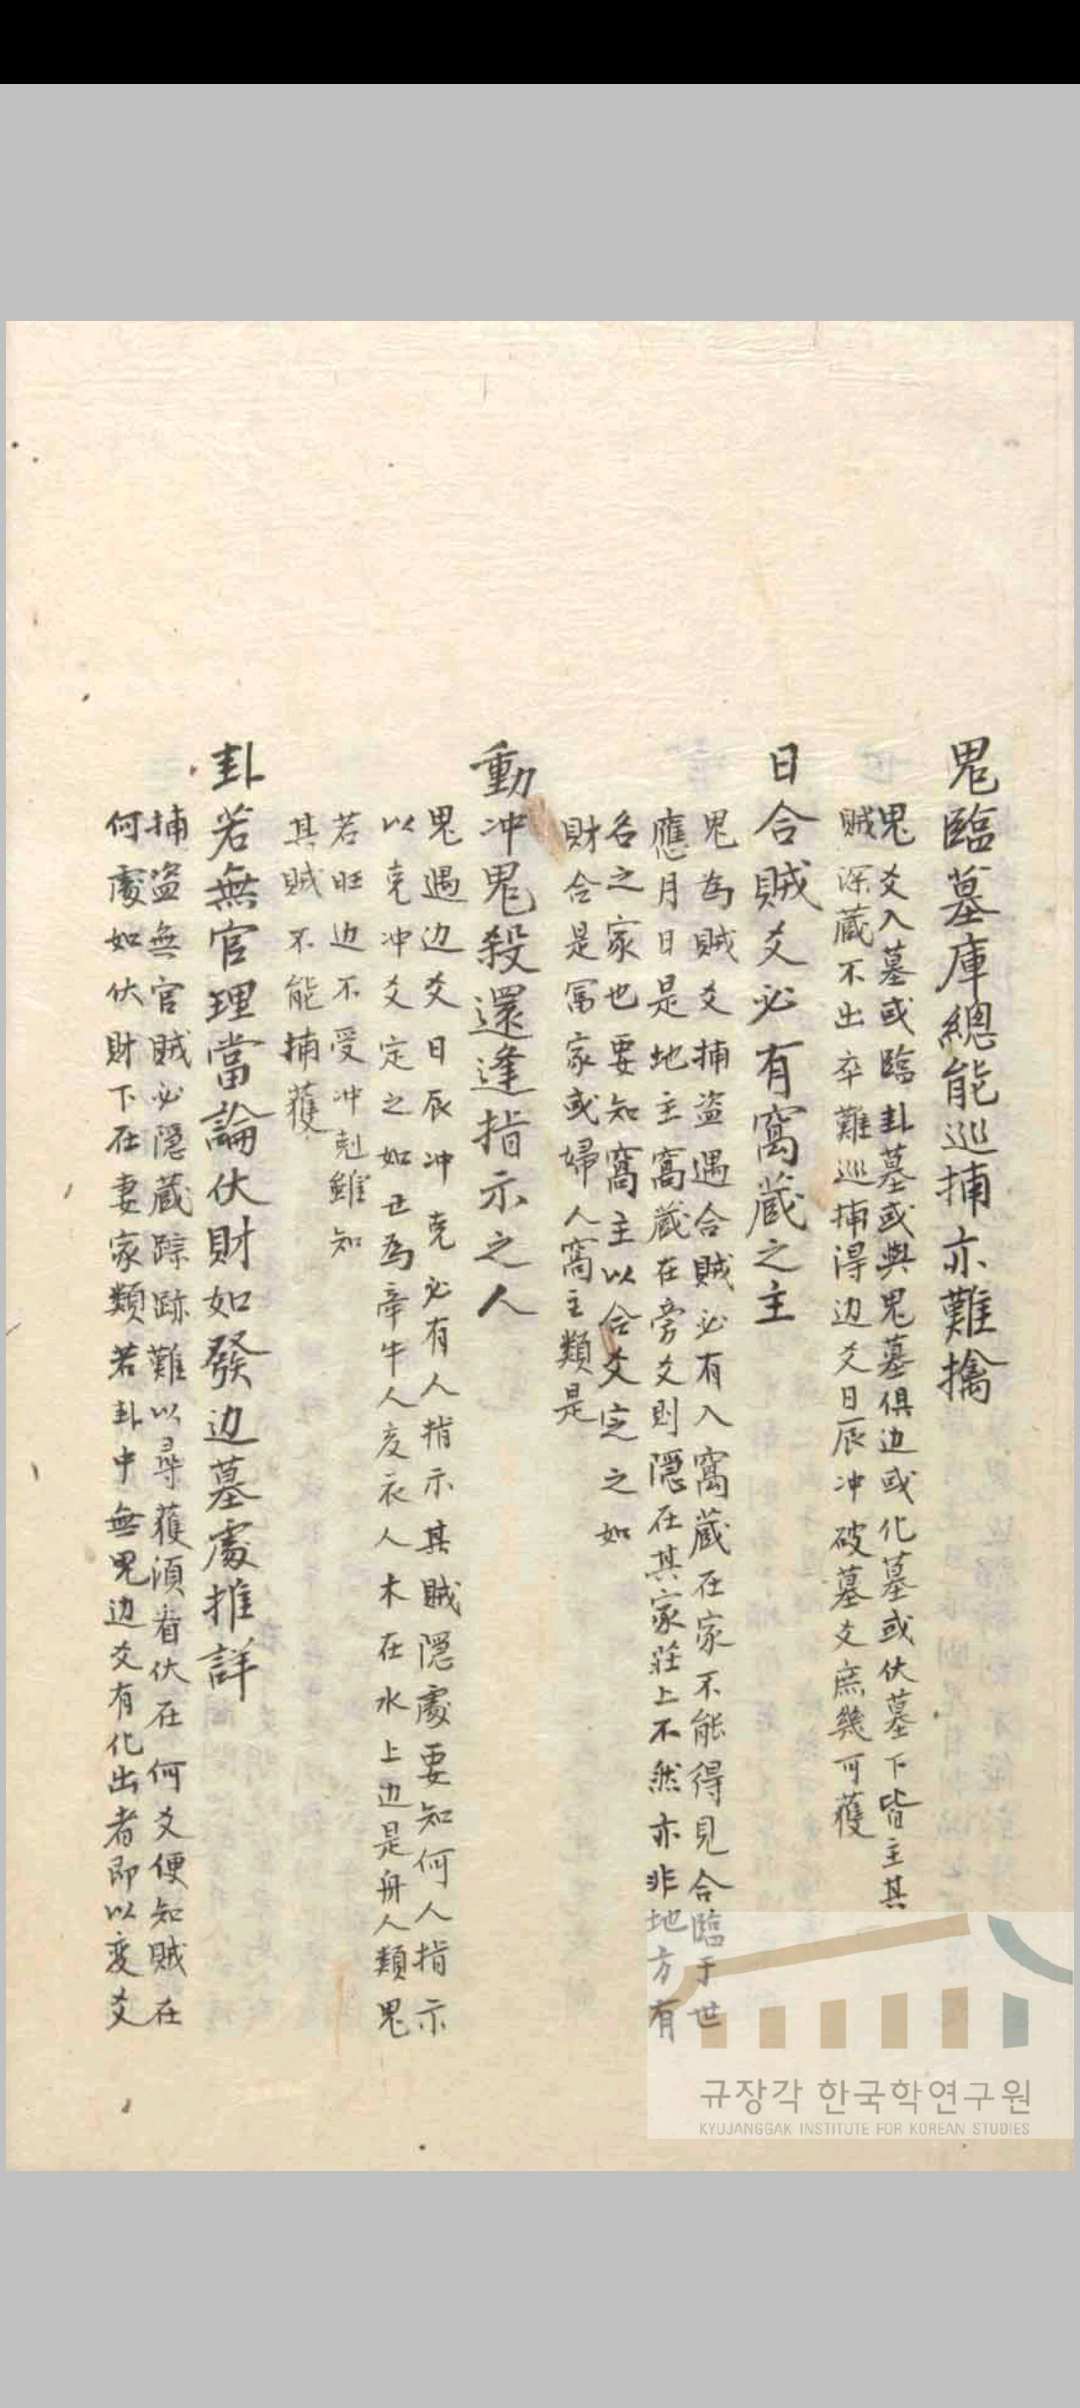 鬼臨墓庫總能巡捕亦難擒
鬼爻入墓或臨卦墓或與鬼墓俱边或化墓或伏墓下皆主其
賊深藏不出卒難巡捕得边爻日辰冲破墓爻庶幾可獲
日合賊爻必有窩藏之主
鬼為賊爻捕盗遇合賊必有入窩藏在家不能得見合臨于世
應月日是地主窩藏在旁爻則隱在其家莊上不然亦非地方有
名之家也要知窩主以合爻定之如
財合是冨家或婦人窩主類是
動冲鬼殺還逢指示之人
鬼遇边爻日辰冲克必有人指示其賊隠處要知何人指示
以克冲爻定之如丑為牽牛人亥衣人木在水上边是舟人類鬼
若旺边不受冲剋雖知
其賊不能捕獲
卦若無官理當論伏財如發边墓處推詳
捕盗無官賊必隱蔵踪跡難以尋獲湏看伏在何爻便知賊在
何處如伏財下在妻家類若卦中無鬼边爻有化出者即以変爻
규장각 한국학연구원
KYUJANGGAK INSTITUTE FOR KOREAN STUDIES